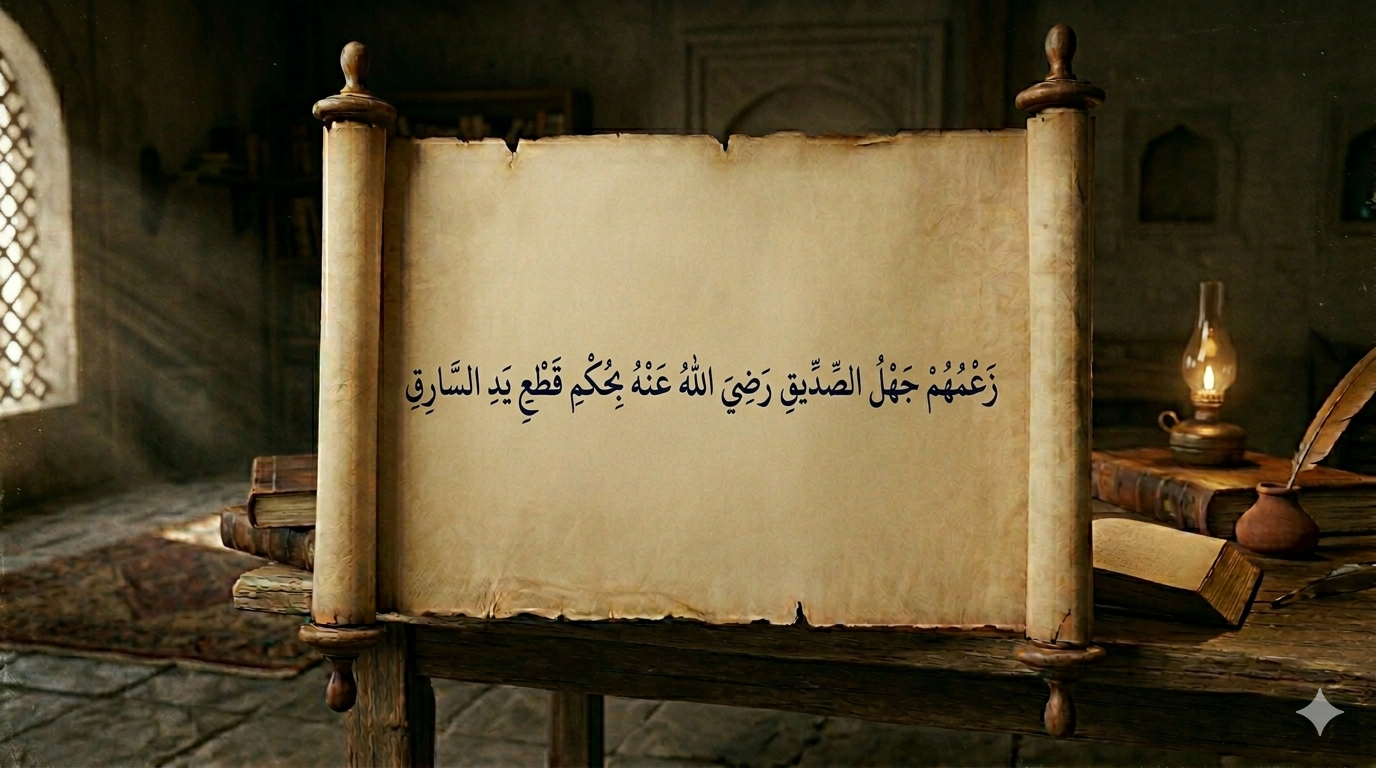 زَعْمُهُمْ جَهْلُ الصِّدِّيقِ رَضِيَ اللهُ عَنْهُ بِحُكْمِ قَطْعِ يَدِ السَّارِقِ